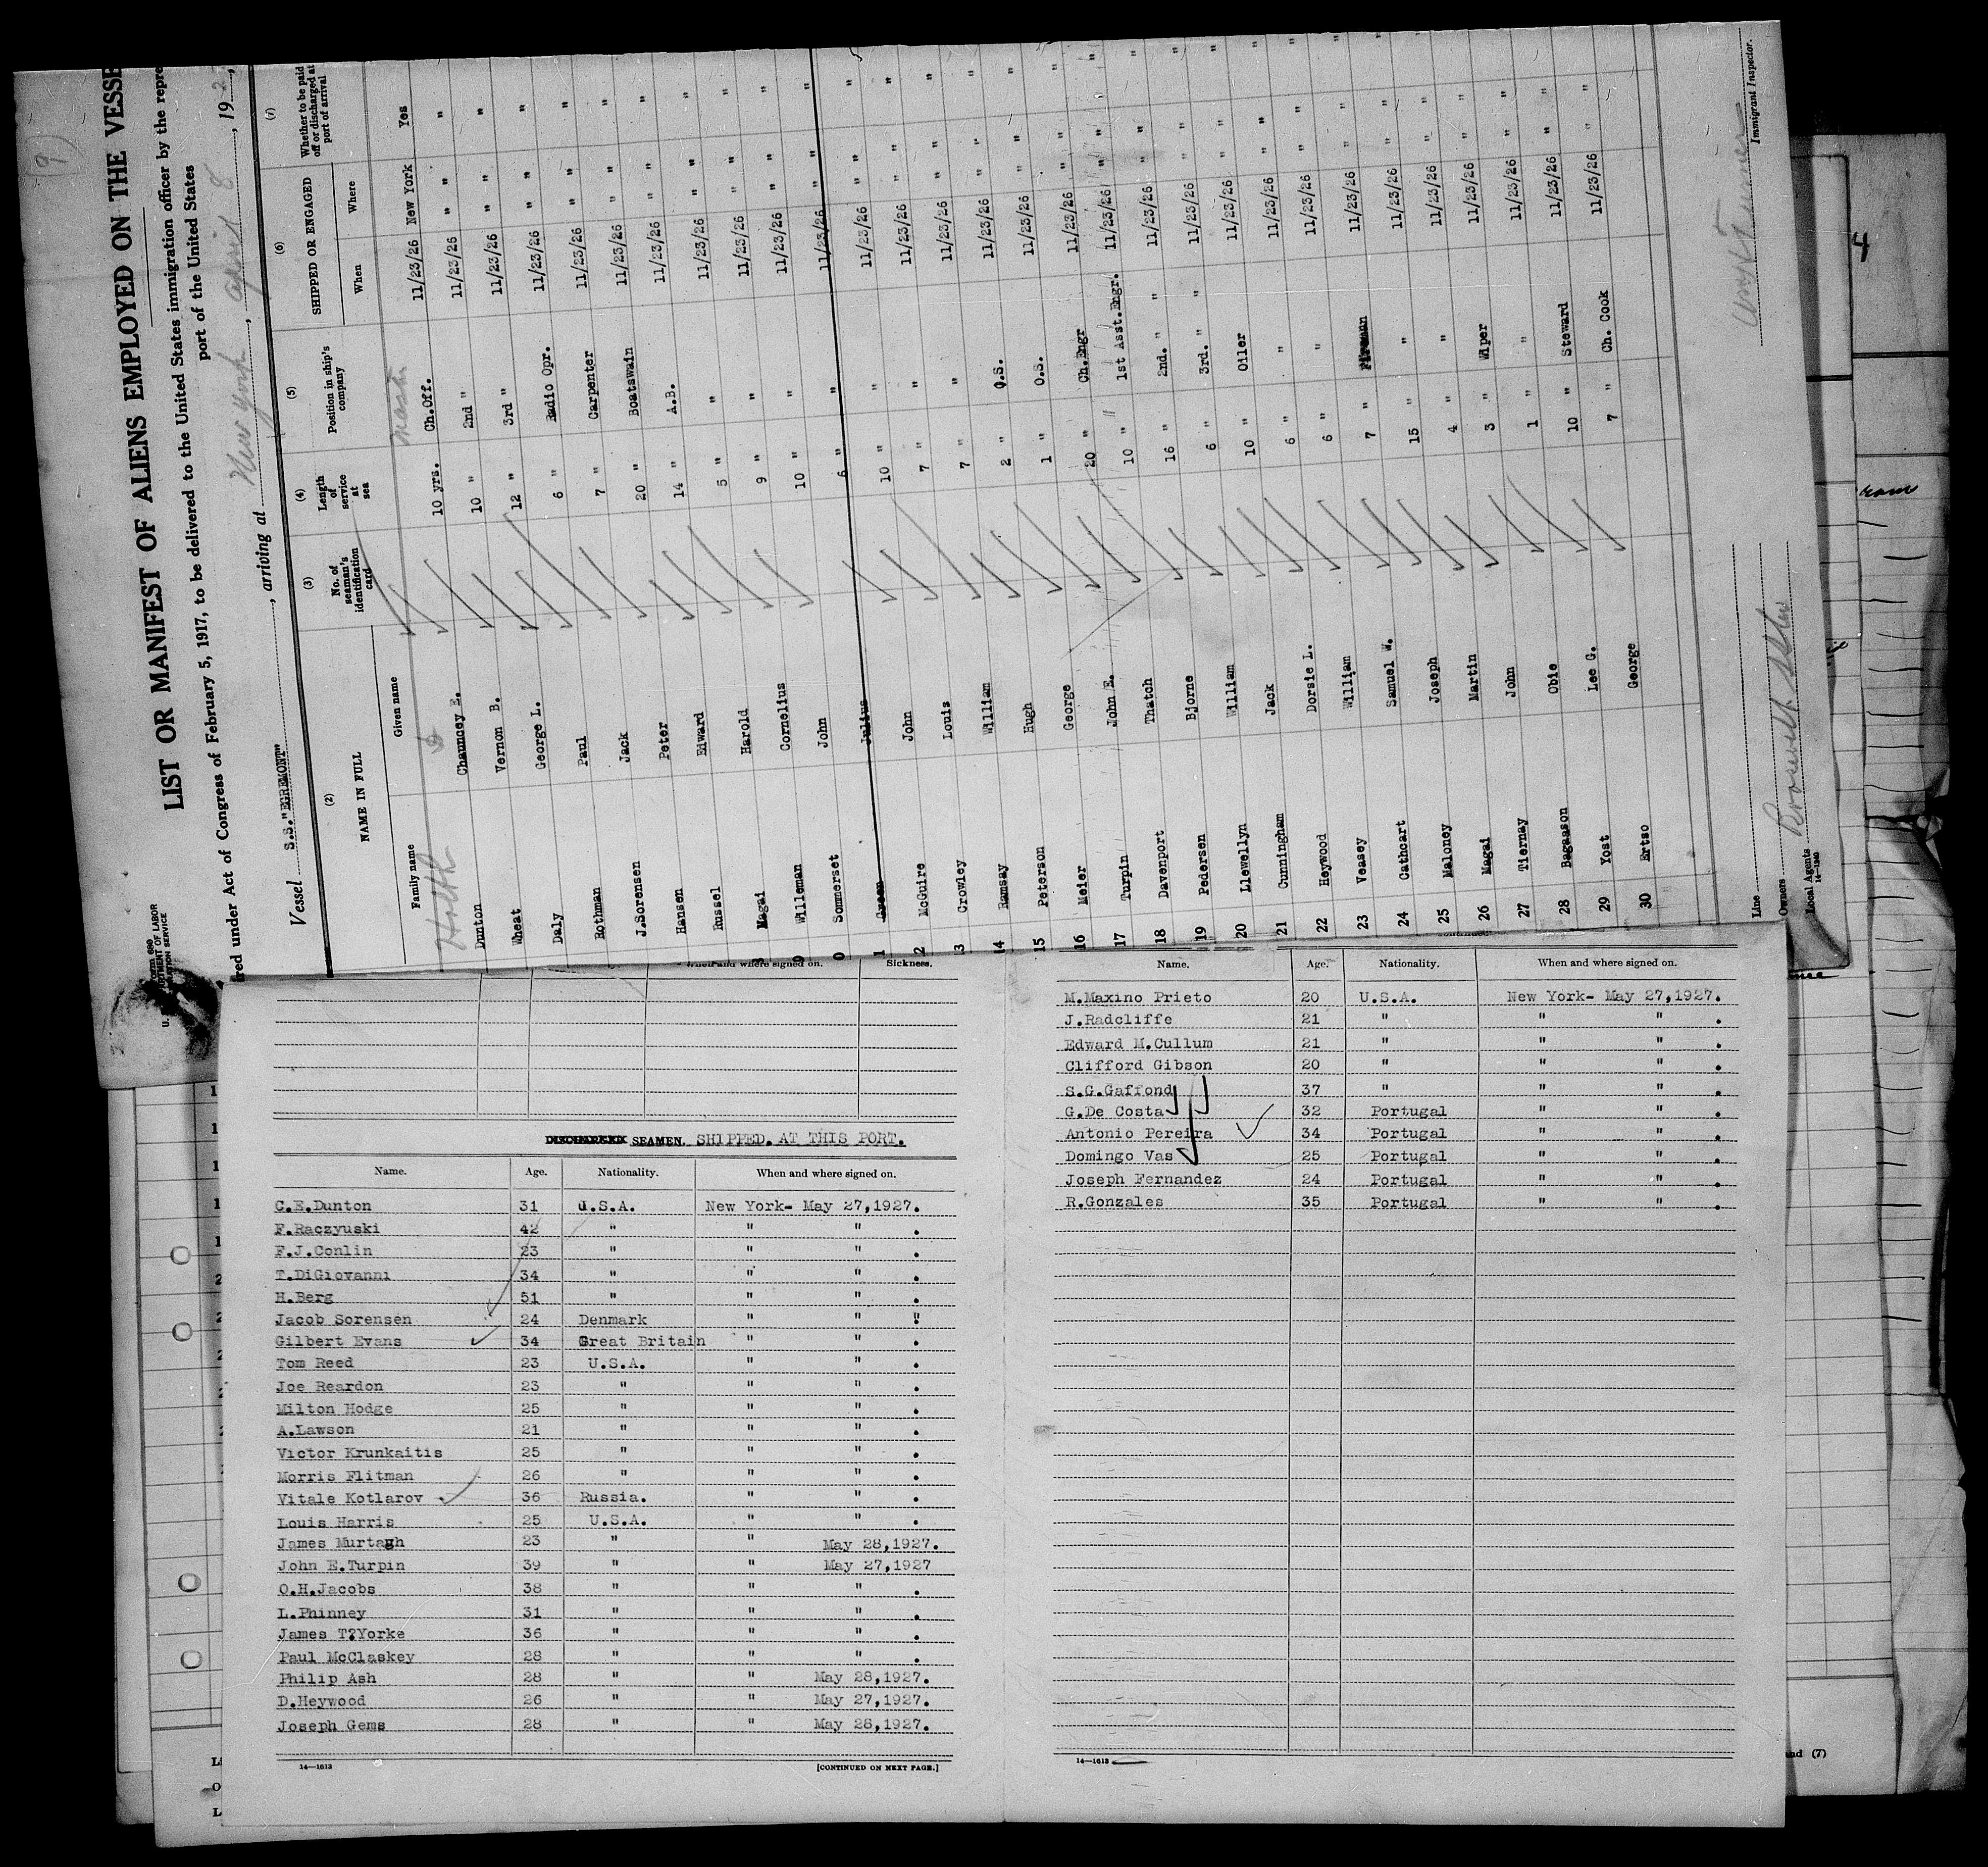 LIST OR MANIFEST OF ALIENS EMPLOYED ON THE VESSE
red under Act of Congress of February 5, 1917, to be delivered to the United States immigration officer by the repre
port of the United States
Vessel S.S."EGREMONT", arriving at New York, April 8, 192
(2) (3) (4) (5) (6) (7)
NAME IN FULL No. of seaman's identification card Length of service at sea Position in ship's company SHIPPED OR ENGAGED Whether to be paid off or discharged at port of arrival
Family name Given name When Where
Master
Dunton Chauncey E. 10 yrs. Ch.Off. 11/23/26 New York Yes
Wheat Vernon B. 10 " 2nd " 11/23/26 " " "
Daly George L. 12 " 3rd " 11/23/26 " " "
Rothman Paul 6 " Radio Opr. 11/23/26 " " "
J.Sorensen Jack 7 " Carpenter 11/23/26 " " "
Hansen Peter 20 " Boatswain 11/23/26 " " "
Russel Edward 14 " A.B. 11/23/26 " " "
8 Magai Harold 5 " " 11/23/26 " " "
9 Willeman Cornelius 9 " " 11/23/26 " " "
0 Sommerset John 10 " " 11/23/26 " " "
1 Green Julius 6 " " 11/23/26 " " "
2 McGuire John 10 " " 11/23/26 " " "
3 Crowley Louis 7 " " 11/23/26 " " "
14 Ramsay William 7 " " 11/23/26 " " "
15 Peterson Hugh 2 " O.S. 11/23/26 " " "
16 Meier George 1 " O.S. 11/23/26 " " "
17 Turpin John E. 20 " Ch.Engr 11/23/26 " " "
18 Davenport Thatch 10 " 1st Asst.Engr. 11/23/26 " " "
19 Pedersen Bjorne 16 " 2nd. " " 11/23/26 " " "
20 Llewellyn William 6 " 3rd. " " 11/23/26 " " "
21 Cunningham Jack 10 " Oiler 11/23/26 " " "
22 Heywood Dorsie L. 6 " " 11/23/26 " " "
23 Veasey William 6 " " 11/23/26 " " "
24 Cathcart Samuel W. 7 " Fireman 11/23/26 " " "
25 Maloney Joseph 15 " " 11/23/26 " " "
26 Magai Martin 4 " " 11/23/26 " " "
27 Tiernay John 3 " Wiper 11/23/26 " " "
28 Bagasson Obie 1 " " 11/23/26 " " "
29 Yost Lee G. 10 " Steward 11/23/26 " " "
30 Ertso George 7 " Ch. Cook 11/23/26 " " "
Line
Owners Roosevelt
Local Agents
Immigrant Inspector.
When and where signed on. Sickness.
DISCHARGED SEAMEN. SHIPPED. AT THIS PORT.
Name. Age. Nationality. When and where signed on.
C.E.Dunton 31 U.S.A. New York- May 27,1927.
F.Raczyuski 42 " " " .
F.J.Conlin 23 " " " .
T.DiGiovanni 34 " " " .
H.Berg 51 " " " .
Jacob Sorensen 24 Denmark " " "
Gilbert Evans 34 Great Britain " " .
Tom Reed 23 U.S.A. " " .
Joe Reardon 23 " " " .
Milton Hodge 25 " " " .
A.Lawson 21 " " " .
Victor Krunkaitis 25 " " " .
Morris Flitman 26 " " " .
Vitale Kotlarov 36 Russia. " " .
Louis Harris 25 U.S.A. " " .
James Murtagh 23 " " May 28,1927.
John E.Turpin 39 " " May 27,1927
O.H.Jacobs 38 " " " .
L.Phinney 31 " " " .
James T?Yorke 36 " " " .
Paul McClaskey 28 " " " .
Philip Ash 28 " " May 28,1927.
D.Heywood 26 " " May 27,1927.
Joseph Gems 28 " " May 28,1927.
14—1613 [CONTINUED ON NEXT PAGE.]
Name. Age. Nationality. When and where signed on.
M.Maxino Prieto 20 U.S.A. New York- May 27,1927.
J.Radcliffe 21 " " " .
Edward M.Cullum 21 " " " .
Clifford Gibson 20 " " " .
S.G.Gaffond 37 " " " .
G.De Costa 32 Portugal " " .
Antonio Pereira 34 Portugal " " .
Domingo Vas 25 Portugal " " .
Joseph Fernandez 24 Portugal " " .
R.Gonzales 35 Portugal " " .
14—1613
and (7)
4